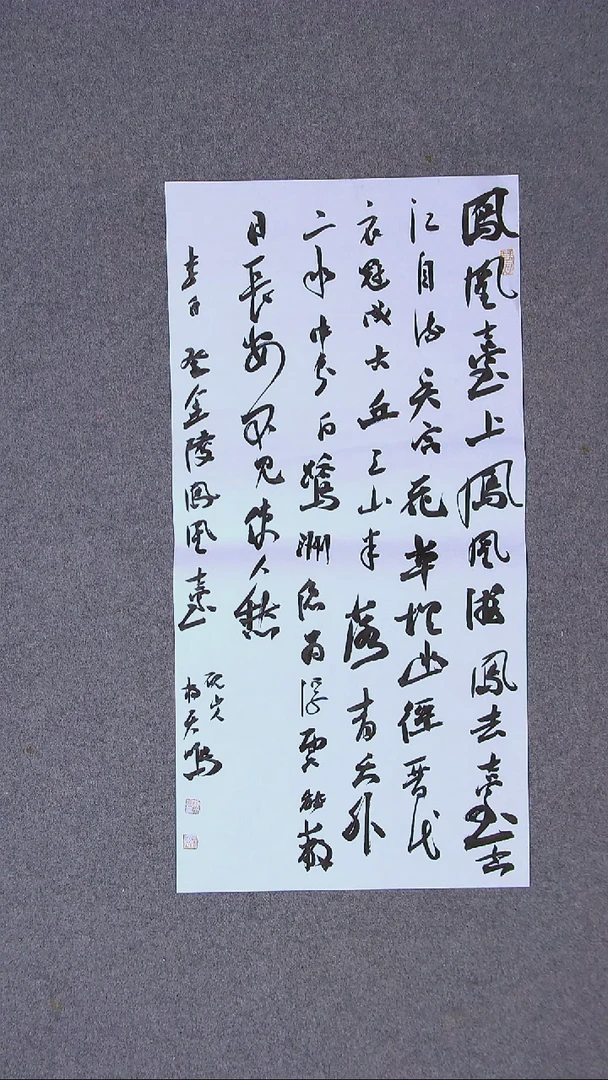 鳳凰臺上鳳凰遊鳳去臺空
江自流吴宫花草埋幽徑晋代
衣冠成古丘三山半落青天外
二水中分白鷺洲總为浮雲能蔽
日長安不見使人愁
李白登金陵鳳凰臺